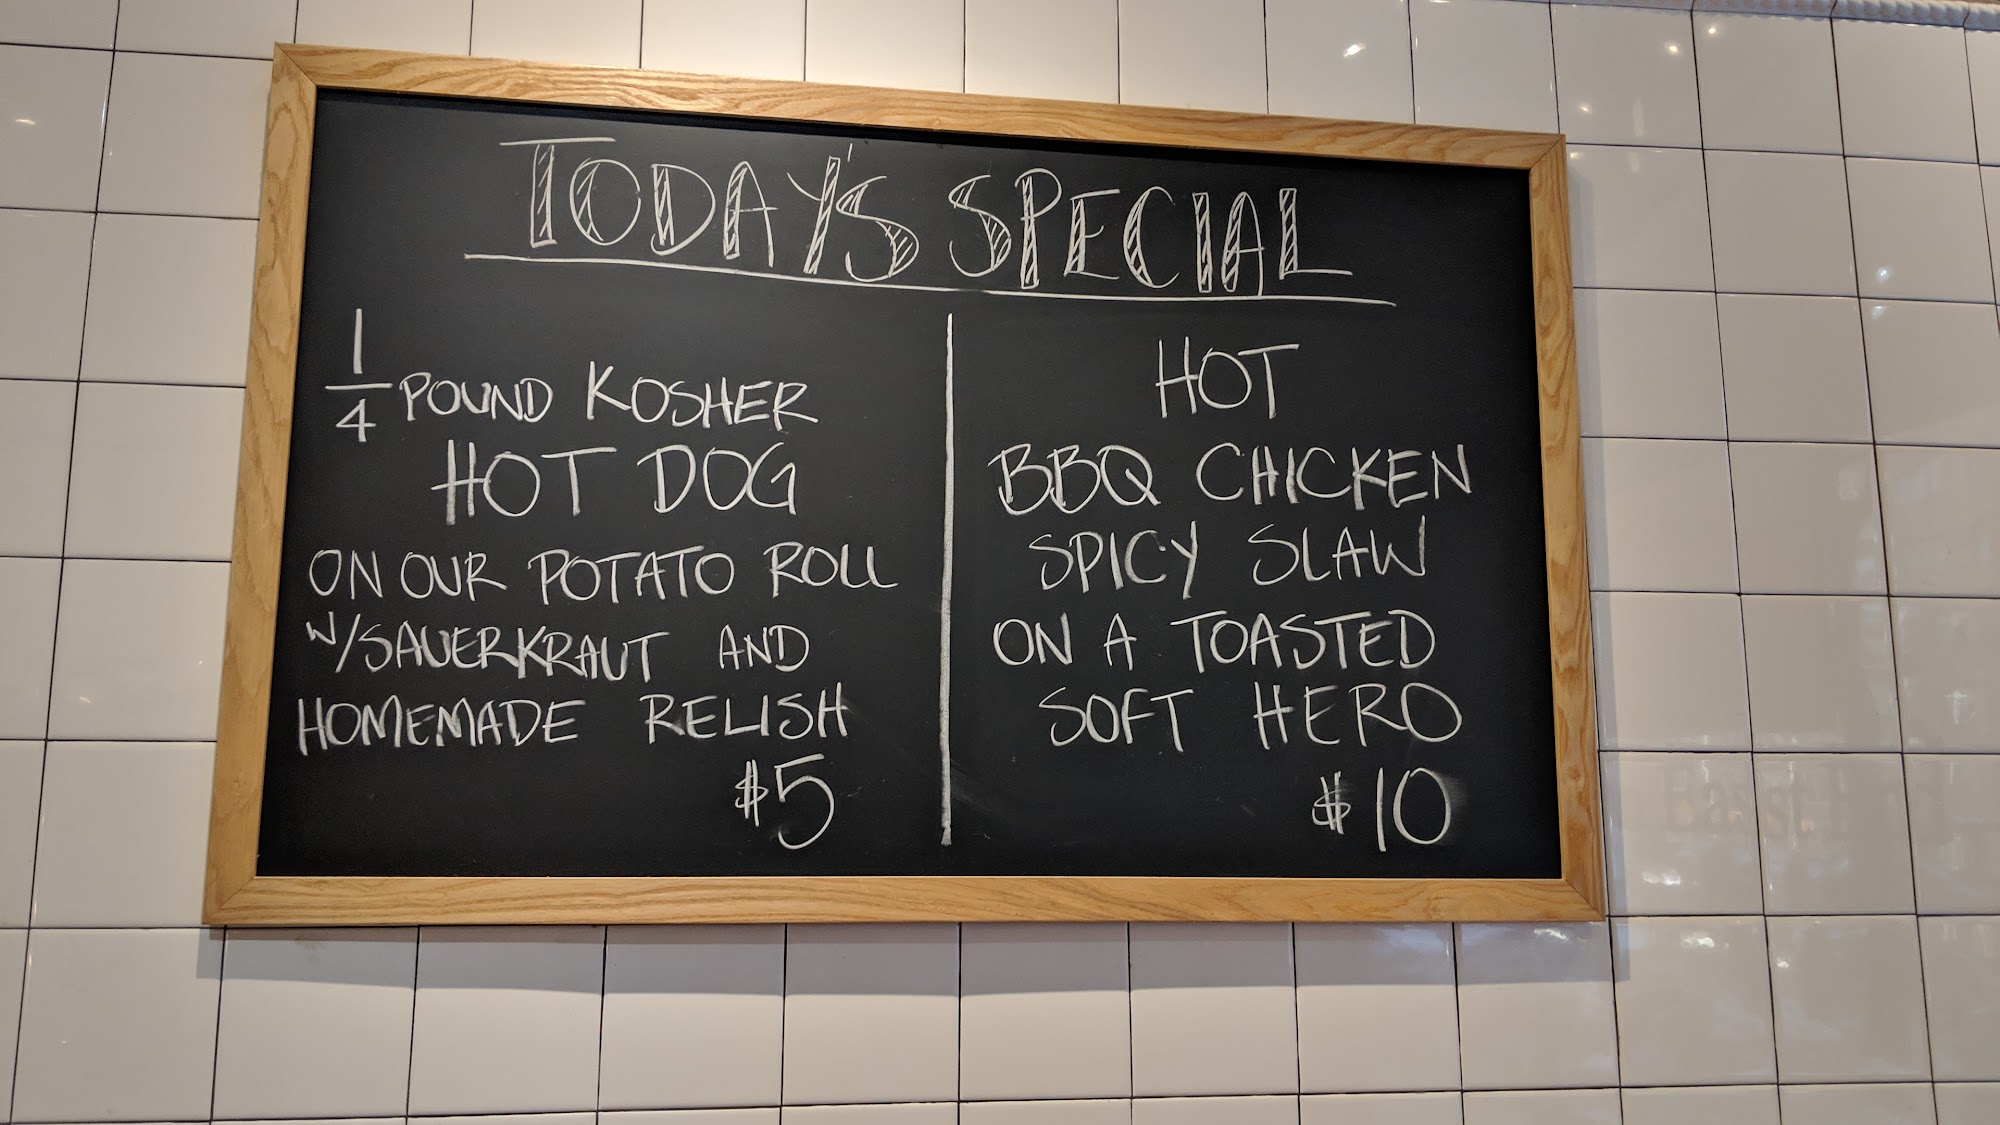 TODAY'S SPECIAL
1/4 POUND KOSHER
HOT DOG
ON OUR POTATO ROLL
W/SAUERKRAUT AND
HOMEMADE RELISH
$5
HOT
BBQ CHICKEN
SPICY SLAW
ON A TOASTED
SOFT HERO
$10